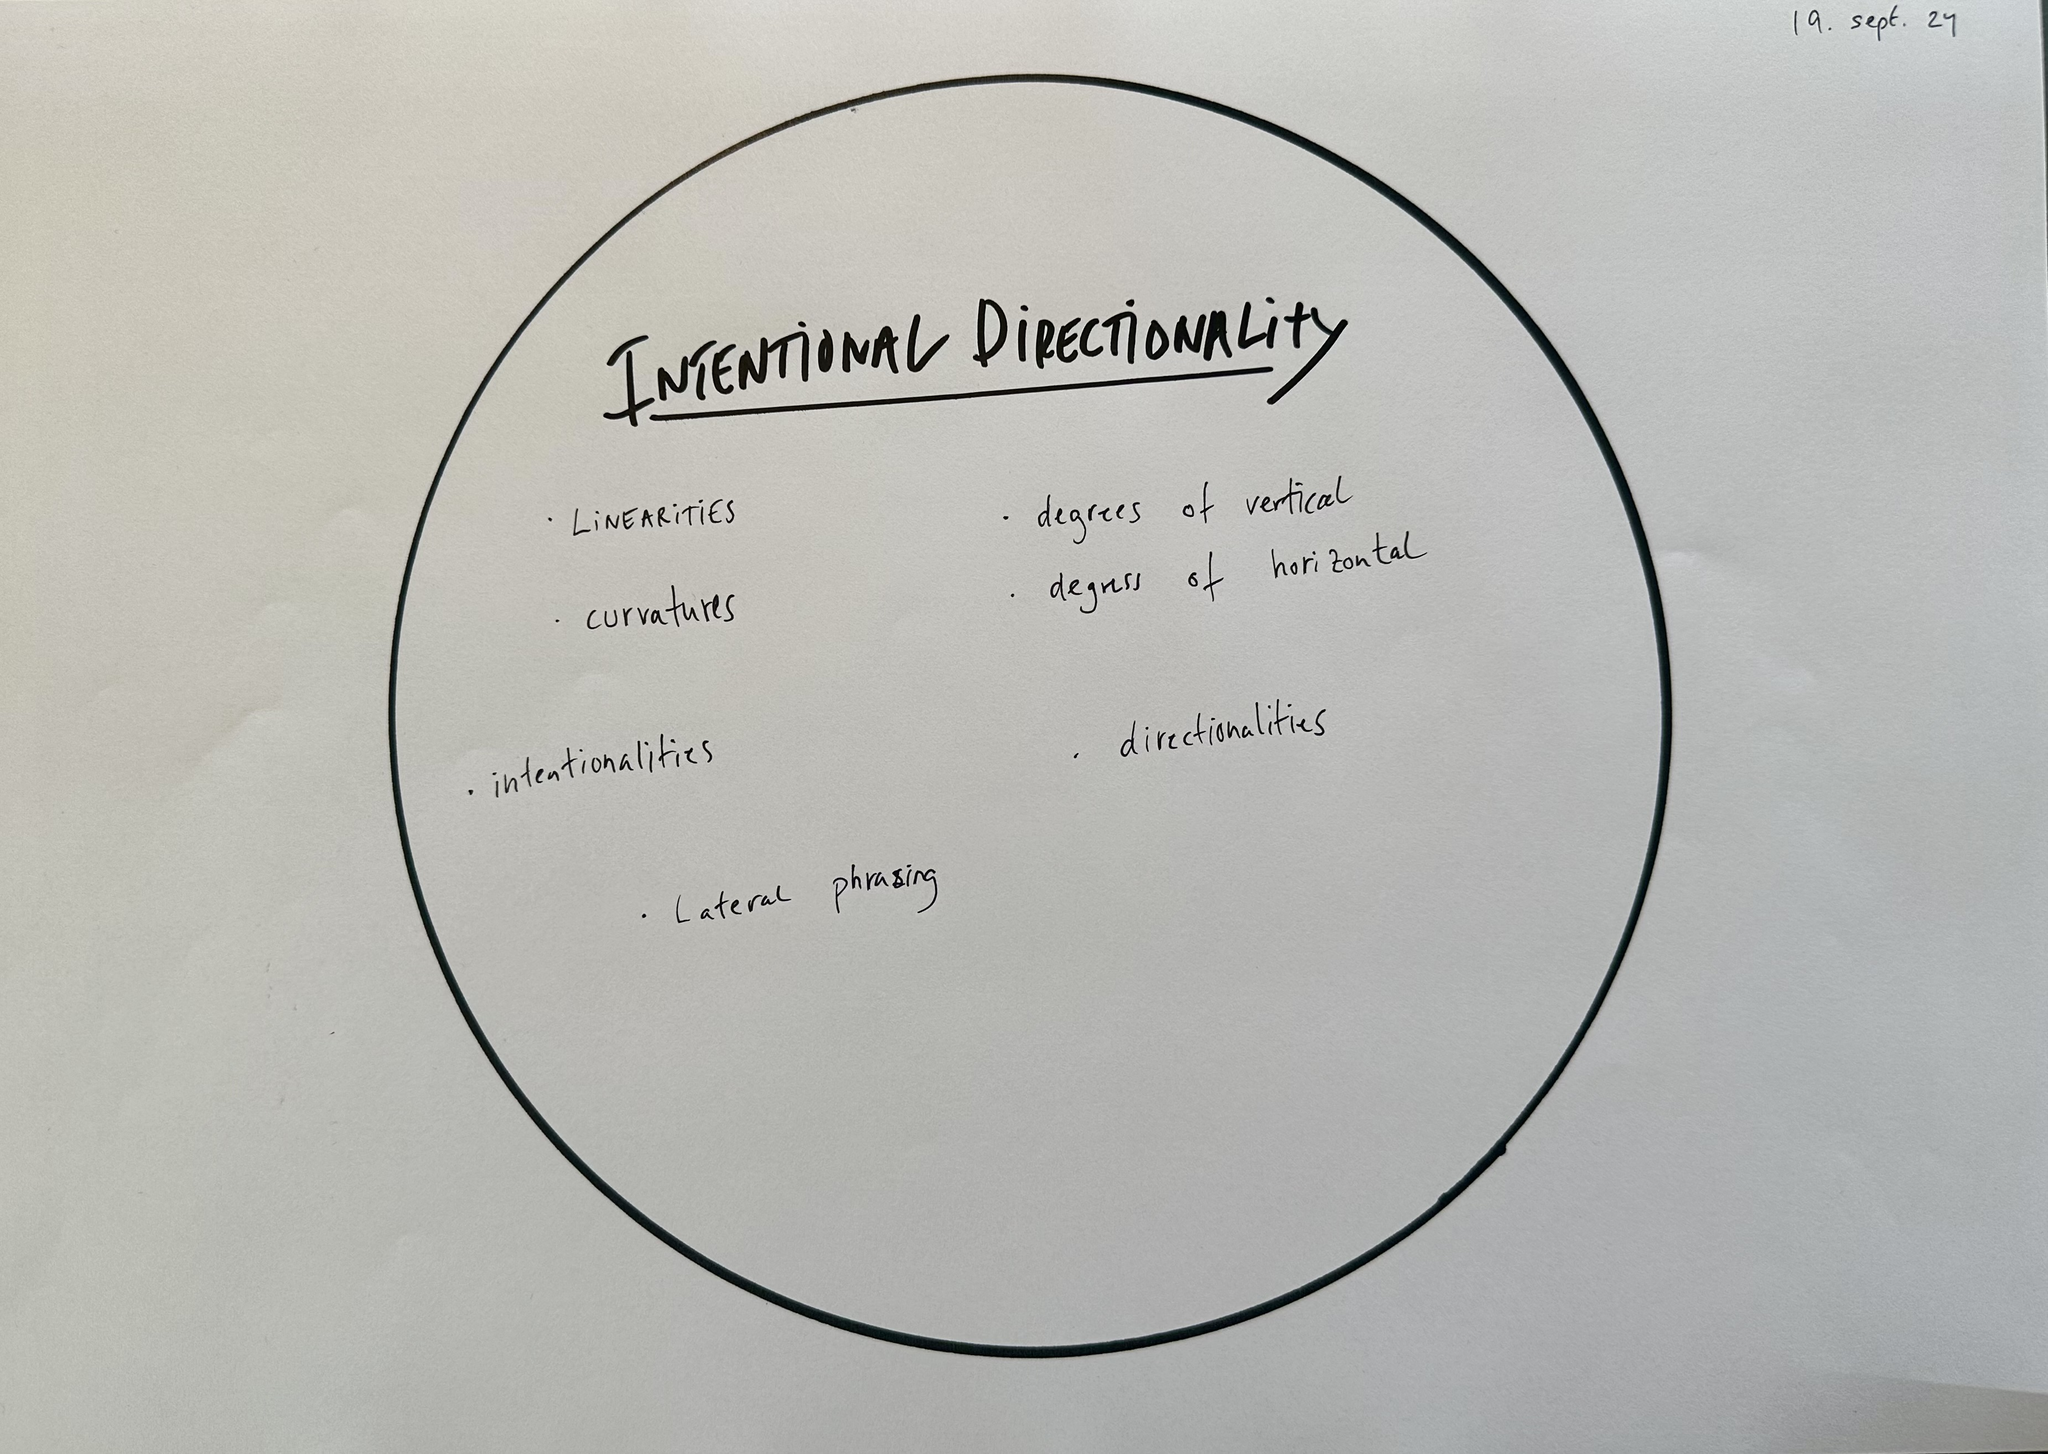 19. sept. 24
INTENTIONAL DIRECTIONALITY
· LINEARITIES
· degrees of vertical
· curvatures
· degress of horizontal
· intentionalities
· directionalities
· Lateral phrasing